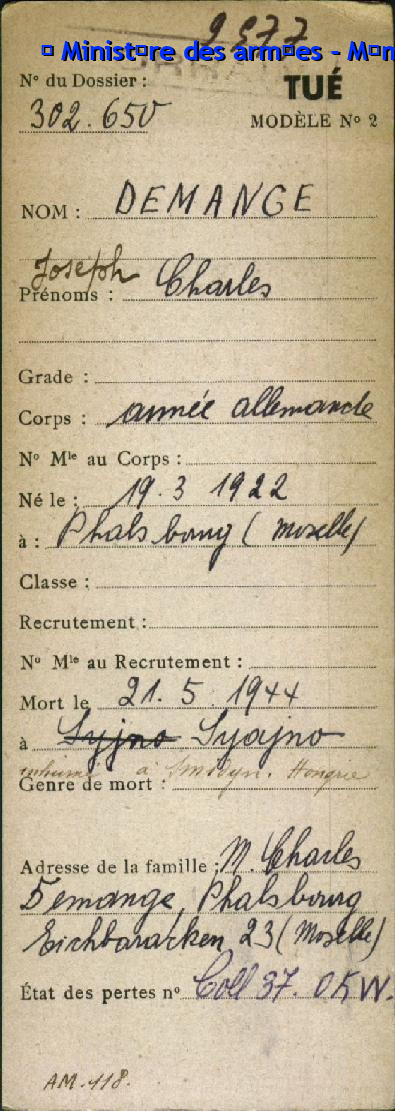 9577
Ministre des armes - M
N° du Dossier :
TUÉ
302.650
MODÈLE N° 2
NOM : DEMANGE
Joseph
Prénoms : Charles
Grade :
Corps : armée allemande
N° Mle au Corps :
Né le : 19.3 1922
à : Phalsbourg (Moselle)
Classe :
Recrutement :
N° Mle au Recrutement :
Mort le 21.5 1944
à Syjno Syajno
inhumé à Hongrie
Genre de mort :
Adresse de la famille : M Charles
Demange, Phalsbourg
Eichbaracken 23 (Moselle)
État des pertes n° Coll 37. OKW.
AM.118.